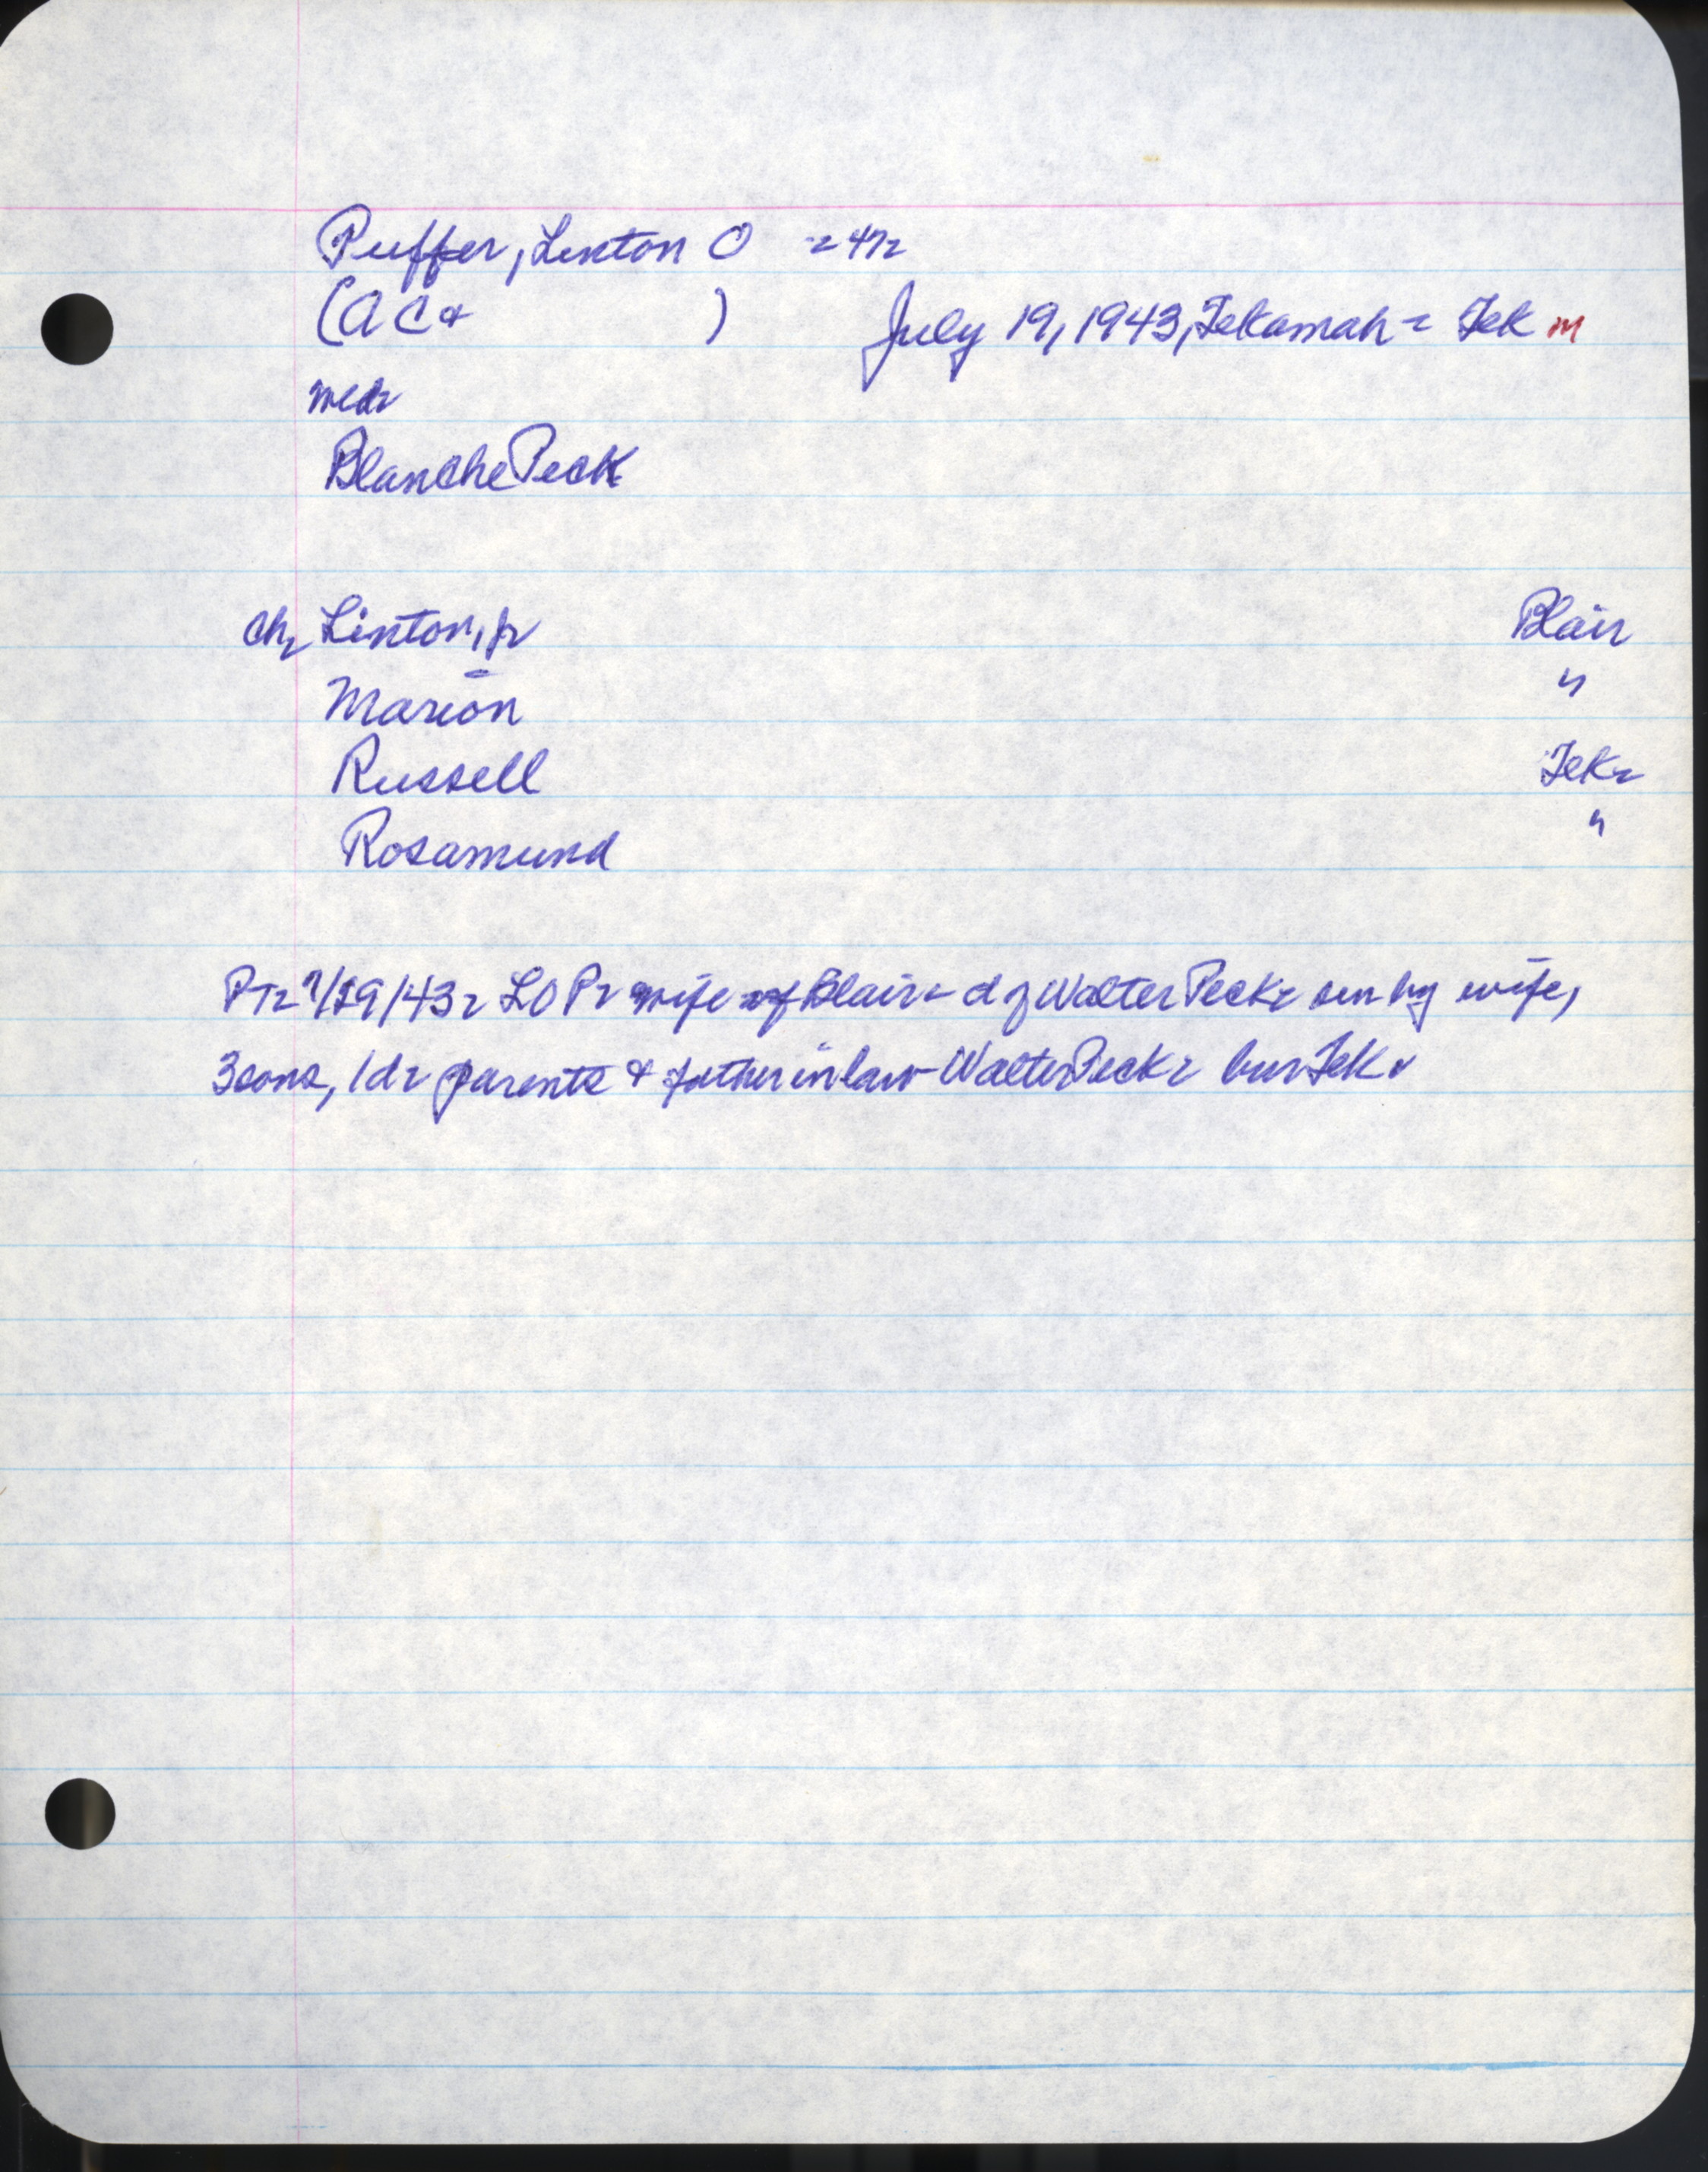 Puffer, Linton O - 47-
(A C & ) July 19, 1943, Tekamah - Tek m
med-
Blanche Peck
ch- Linton, jr Blair
Marion "
Russell Tek-
Rosamund "
PT- 7/19/43- L O P- wife of Blair- d of Walter Peck- sur by wife,
3 sons, 1 d- parents & father in law- Walter Peck- bur Tek-